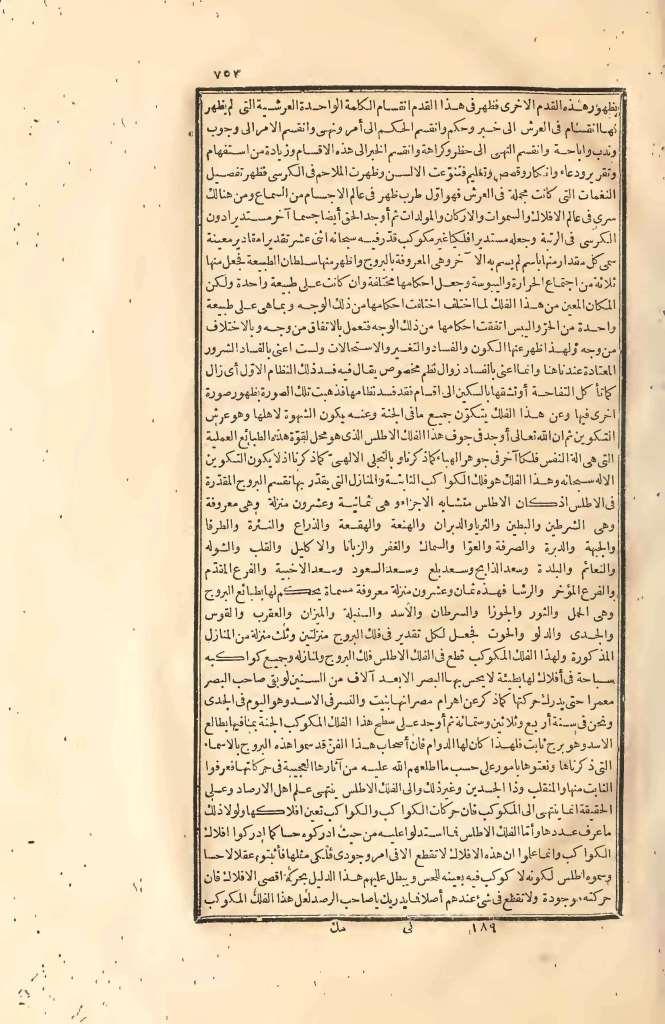 ٧٥٣
بظهور هذه القدم الاخرى فظهر فى هذا القدم انقسام الكلمة الواحدة العرشية التى لم يظهر
لها انقسام فى العرش الى خبر وحكم وانقسم الحكم الى أمر ونهى وانقسم الامر الى وجوب
وندب واباحة وانقسم النهى الى حظر وكراهة وانقسم الخبر الى هذه الاقسام وزيادة من استفهام
وتقرير ودعاء وانكار وقصص وتعليم فتنوّعت الالسن وظهرت الملاحم فى الكرسى فظهر تفصيل
النغمات التى كانت مجملة فى العرش فهو اوّل طرب ظهر فى عالم الاجسام من السماع ومن هنالك
سرى فى عالم الافلاك والسموات والاركان والمولدات ثم أوجد الحق أيضا جسما آخر مستديرا دون
الكرسى فى الرتبة وجعله مستديرا فلكيا غير مكوكب قدّر فيه سبحانه اثنى عشر تقديرا مقادير معينة
سمى كل مقدار منها باسم لم يسم به الآخر وهى المعروفة بالبروج واظهر منها سلطان الطبيعة فجعل منها
ثلاثة من اجتماع الحرارة واليبوسة وجعل احكامها مختلفة وان كانت على طبيعة واحدة ولكن
المكان المعين من هذا الفلك لما اختلف اختلفت احكامها من ذلك الوجه وبما هى على طبيعة
واحدة من الحرّ واليبس اتفقت احكامها من ذلك الوجه فتعمل بالاتفاق من وجه وبالاختلاف
من وجه ولهذا اظهر عنها الكون والفساد والتغيير والاستحالات ولست اعنى بالفساد الشرور
المعتادة عندنا هنا وانما اعنى بالفساد زوال نظم مخصوص يقال فيه فسد ذلك النظام الاوّل أى زال
كما تأكل التفاحة أو تشقها بالسكين الى اقسام فقد فسد نظامها فذهبت تلك الصورة بظهور صورة
اخرى فيها وعن هذا الفلك يتكوّن جميع ما فى الجنة وعنه يكون الشهوة لاهلها وهو عرش
التكوين ثم ان الله تعالى أوجد فى جوف هذا الفلك الاطلس الذى هو محل لقوّة هذه الطبائع العملية
التى هى الة النفس فلكا آخر فى جوهر الهباء كما ذكرناه وبالتجلى الالهىّ كما ذكرنا اذ لا يكون التكوين
الا له سبحانه وهذا الفلك هو فلك الكواكب الثابتة والمنازل التى يقدّر بها تقسيم البروج المقدّرة
فى الاطلس اذ كان الاطلس متشابه الاجزاء وهى ثمانية وعشرون منزلة وهى معروفة
وهى الشرطين والبطين والثريا والدبران والهنعة والهقعة والذراع والنثرة والطرفا
والجبهة والدبرة والصرفة والعوّا والسماك والغفر والزبانا والاكليل والقلب والشوله
والنعائم والبلدة وسعد الذابح وسعد بلع وسعد السعود وسعد الاخبية والفرع المقدّم
والفرع المؤخر والرشا فهذه ثمان وعشرون منزلة معروفة مسماة يحكم لها بطبائع البروج
وهى الحمل والثور والجوزا والسرطان والاسد والسنبلة والميزان والعقرب والقوس
والجدى والدلو والحوت فجعل لكل تقدير فى فلك البروج منزلتين وثلث منزلة من المنازل
المذكورة ولهذا الفلك المكوكب قطع فى الفلك الاطلس فلك البروج ولمنازله وجميع كواكبه
سباحة فى أفلاك لها بطيئة لا يحس بها البصر الا بعد آلاف من السنين لو بقى صاحب البصر
معمرا حتى يدرك حركتها كما ذكر عن اهرام مصر انها بنيت والنسر فى الاسد وهو اليوم فى الجدى
ونحن فى سنة أربع وثلاثين وستمائة ثم أوجد على سطح هذا الفلك المكوكب الجنة بما فيها بطالع
الاسد وهو برج ثابت فلهذا كان لها الدوام فان أصحاب هذا الفنّ قد سموا هذه البروج بالاسماء
التى ذكرناها ونعتوها بامور على حسب ما اطلعهم الله عليه من آثارها العجيبة فى حركاتها فعرفوا
الثابت منها والمنقلب وذا الجسدين وغير ذلك والى الفلك الاطلس ينتهى علم اهل الارصاد وعلى
الحقيقة انما ينتهى الى المكوكب فان حركات الكواكب والكواكب تعين افلاكها ولولا ذلك
ما عرف عددها وأما الفلك الاطلس فما استدلوا عليه من حيث ادركوه حسا كما ادركوا افلاك
الكواكب وانما علموا ان هذه الافلاك لا تقطع الا فى امر وجودى فلكى مثلها فأثبتوه عقلا لا حسا
وسموه اطلس لكونه لا كوكب فيه بعينه للحس ويبطل عليهم هذا الدليل بحركة اقصى الافلاك فان
حركته موجودة ولا تقطع فى شئ عندهم أصلا فما يدريك يا صاحب الرصد لعل هذا الفلك المكوكب
١٨٩ فى مك